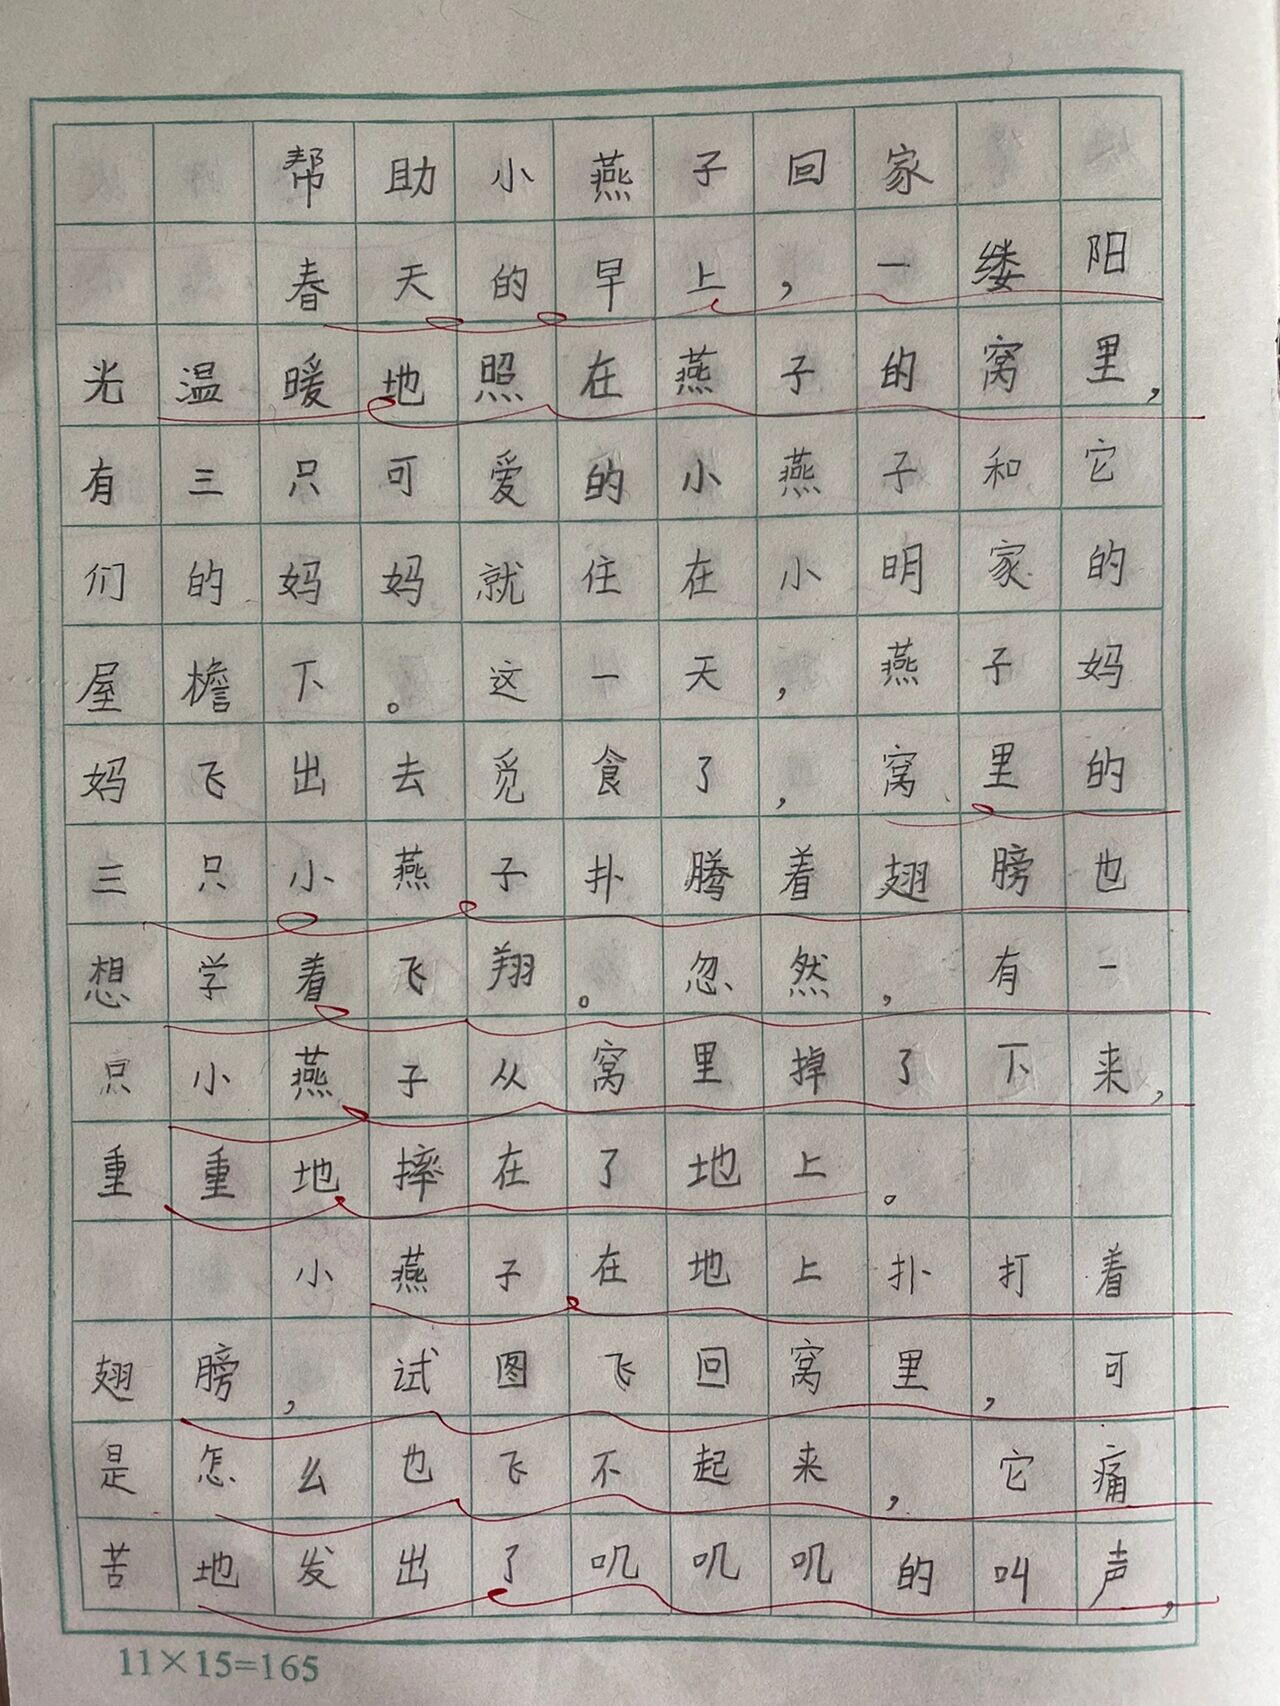 帮助小燕子回家
春天的早上，一缕阳
光温暖地照在燕子的窝里，
有三只可爱的小燕子和它
们的妈妈就住在小明家的
屋檐下。这一天，燕子妈
妈飞出去觅食了，窝里的
三只小燕子扑腾着翅膀也
想学着飞翔。忽然，有一
只小燕子从窝里掉了下来，
重重地摔在了地上。
小燕子在地上扑打着
翅膀，试图飞回窝里，可
是怎么也飞不起来，它痛
苦地发出了叽叽叽的叫声，
11×15=165